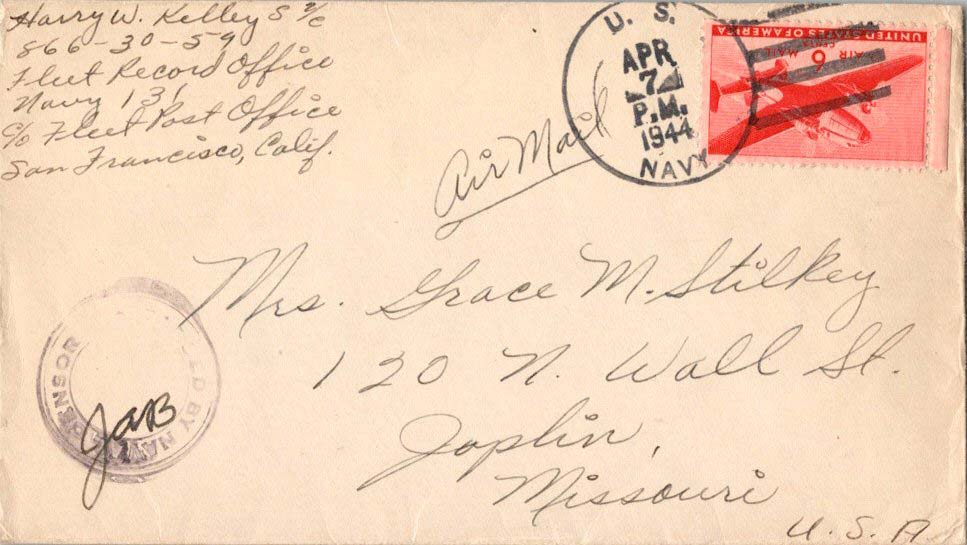 Harry W. Kelley S 2/c
866-30-59
Fleet Record Office
Navy 131
c/o Fleet Post Office
San Francisco, Calif.
U. S.
APR
7
P.M.
1944
NAVY
UNITED STATES OF AMERICA
6
CENTS
AIR MAIL
Air Mail
Mrs. Grace M. Stilkey
120 N. Wall St.
Joplin,
Missouri
U. S. A.
BY NAVAL CENSOR
JaB